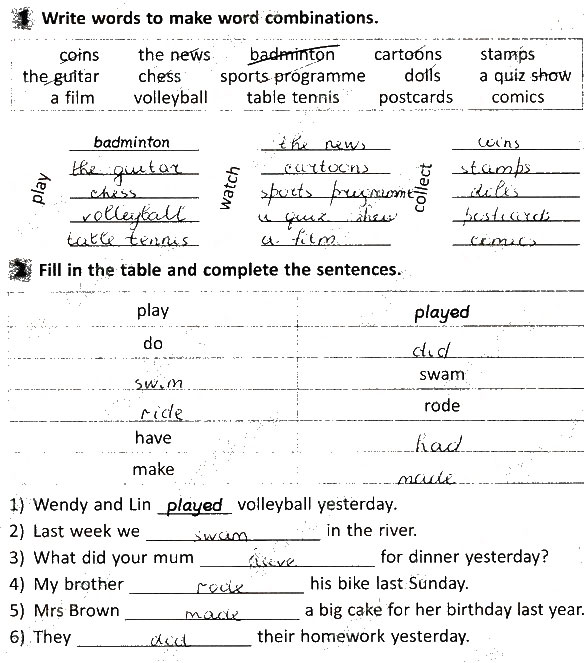 1 Write words to make word combinations.
coins the news badminton cartoons stamps
the guitar chess sports programme dolls a quiz show
a film volleyball table tennis postcards comics
play badminton watch the news collect coins
the guitar cartoons stamps
chess sports programme dolls
volleyball a quiz show postcards
table tennis a film comics
2 Fill in the table and complete the sentences.
play played
do did
swim swam
ride rode
have had
make made
1) Wendy and Lin played volleyball yesterday.
2) Last week we swam in the river.
3) What did your mum have for dinner yesterday?
4) My brother rode his bike last Sunday.
5) Mrs Brown made a big cake for her birthday last year.
6) They did their homework yesterday.